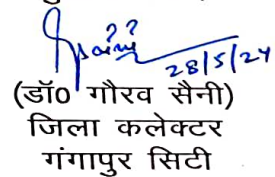 28/5/24
(डॉ0 गौरव सैनी)
जिला कलेक्टर
गंगापुर सिटी